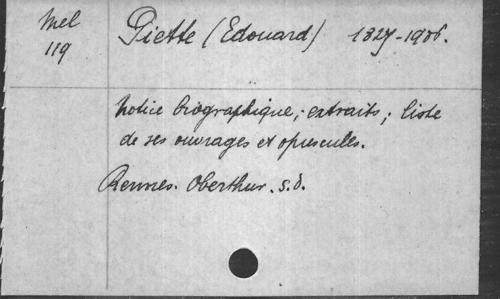 Mel
119
Piette (Edouard) 1827-1906.
Notice biographique; extraits; liste
de ses ouvrages et opuscules.
Rennes. Oberthur. s.d.